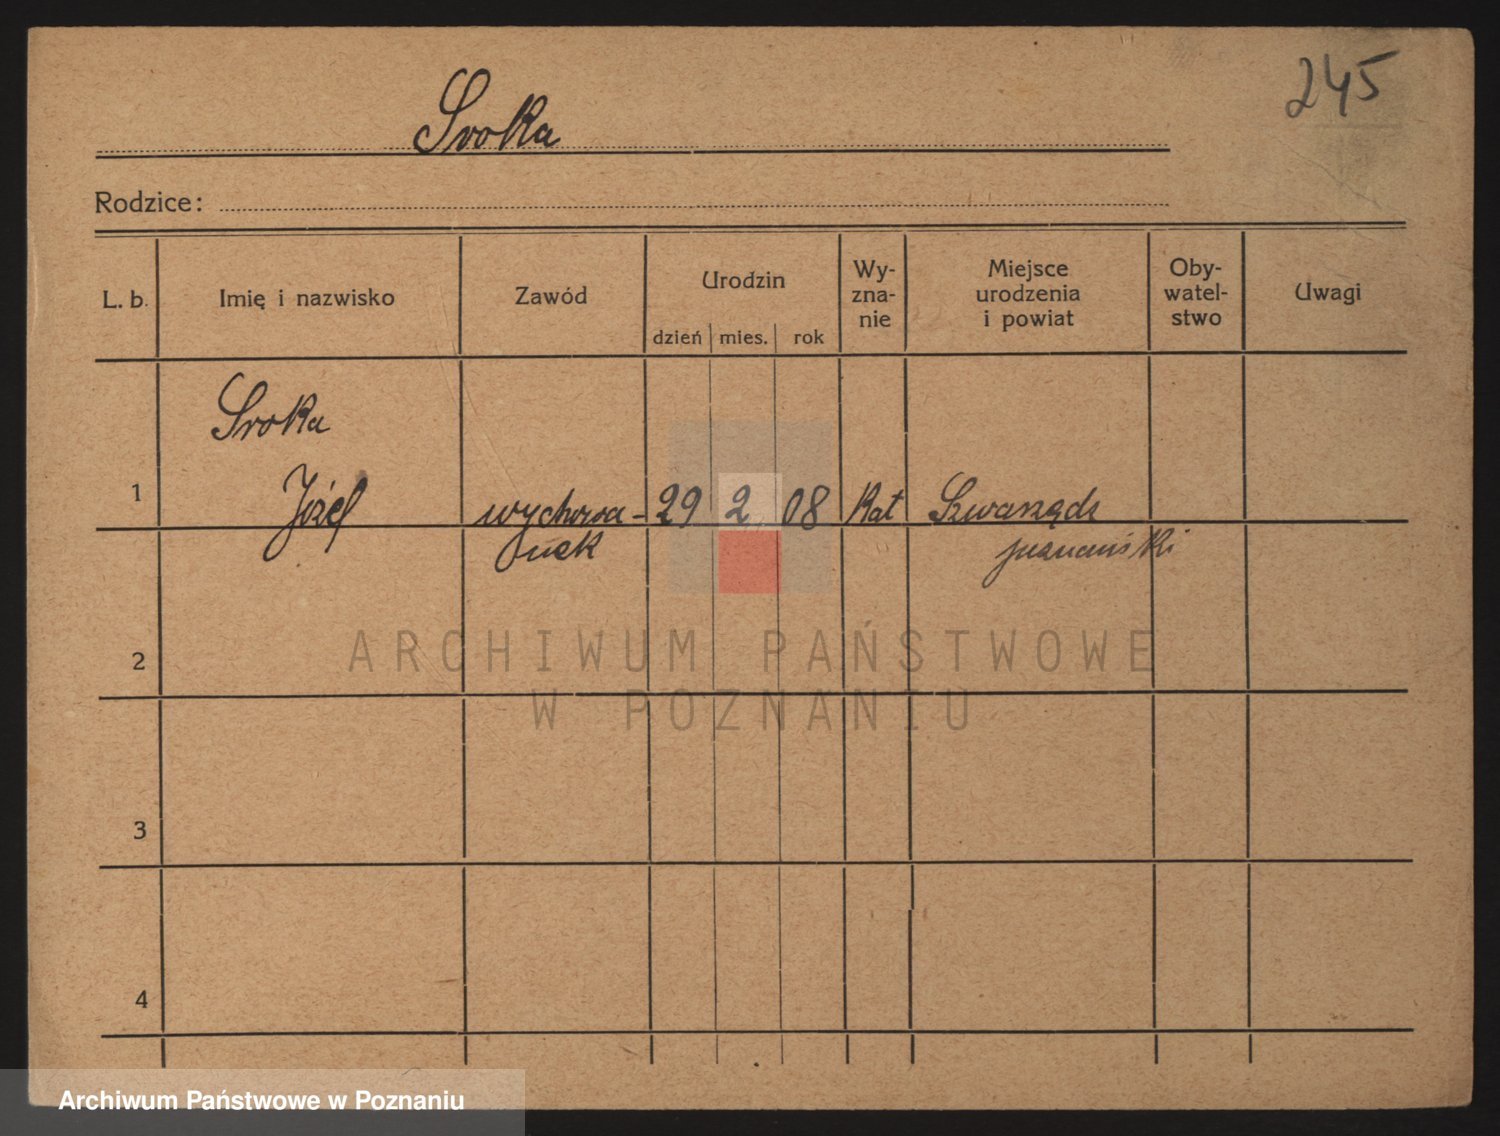 245
Sroka
Rodzice:
L. b.
Imię i nazwisko
Zawód
Urodzin
dzień mies. rok
Wy-
zna-
nie
Miejsce
urodzenia
i powiat
Oby-
watel-
stwo
Uwagi
Sroka
1 Józef wychowa- 29 2 08 Kat Swarzędz
nek
2
3
4
ARCHIWUM PAŃSTWOWE
W POZNANIU
Archiwum Państwowe w Poznaniu